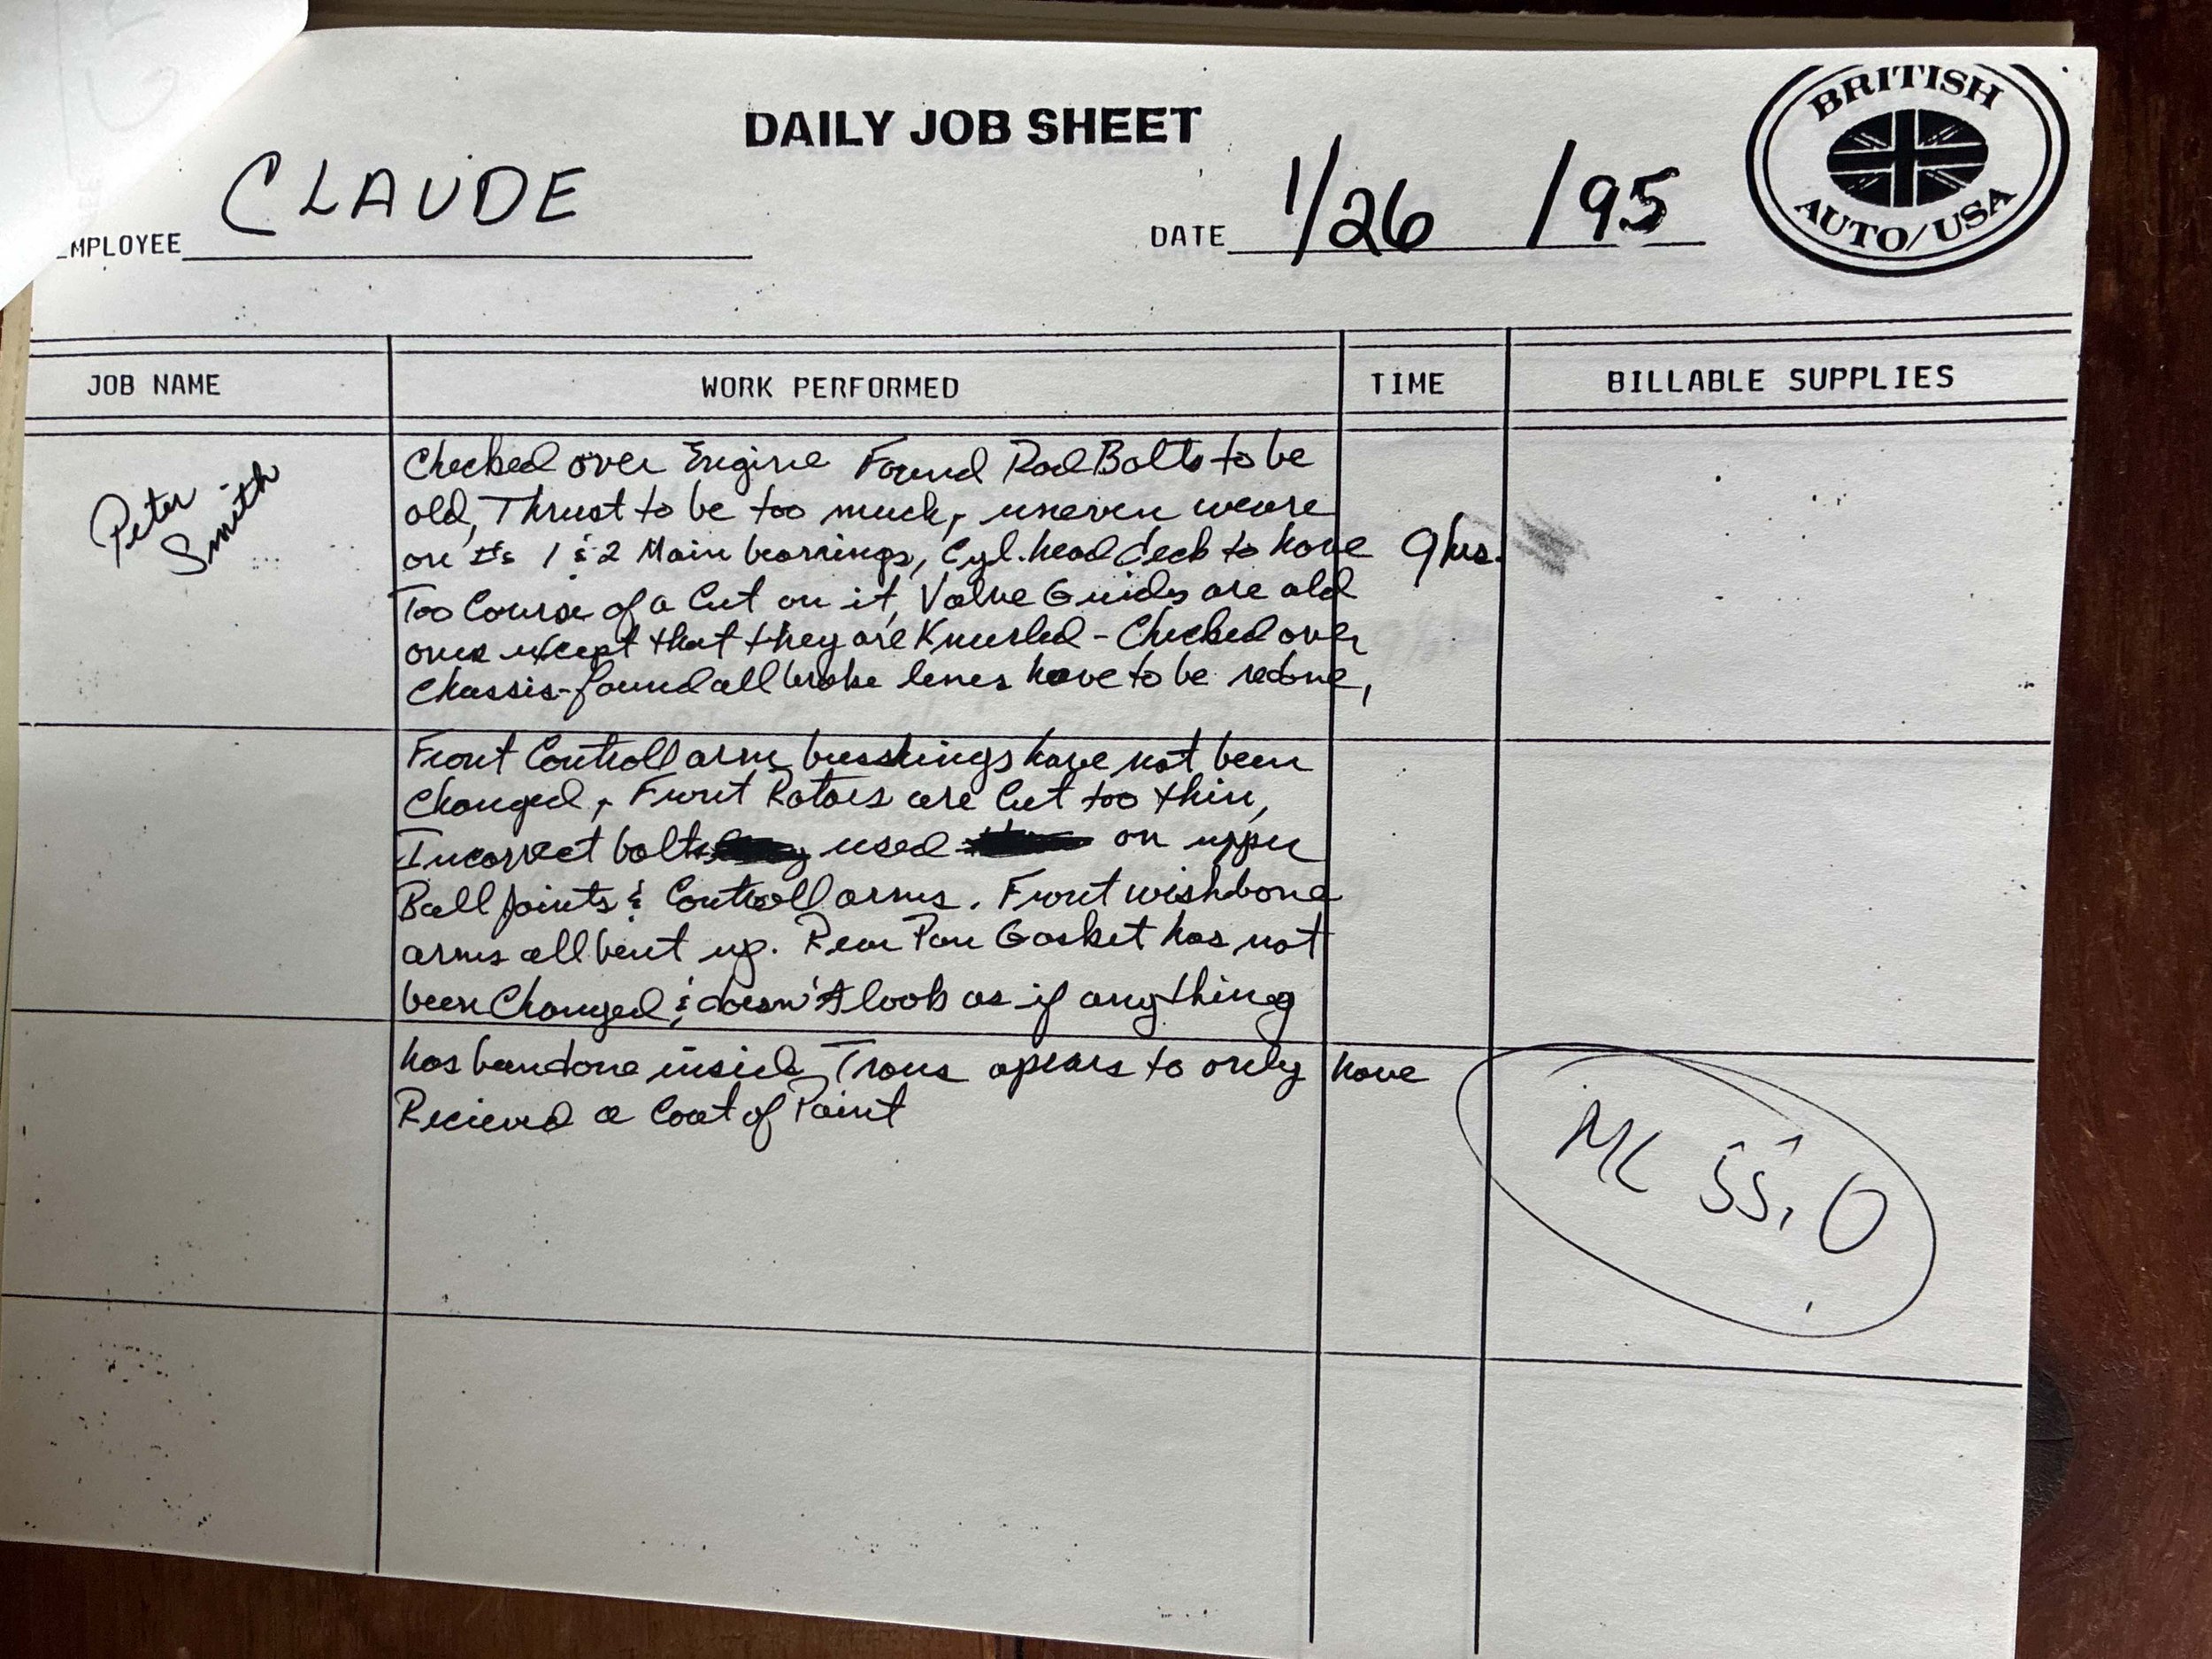 DAILY JOB SHEET
BRITISH
AUTO/USA
MPLOYEE CLAUDE
DATE 1/26 /95
JOB NAME WORK PERFORMED TIME BILLABLE SUPPLIES
Peter
Smith
Checked over Engine Found Rod Bolts to be
old, Thrust to be too much, uneven weare
on #s 1 & 2 Main bearings, Cyl. head deck to have
9 hrs.
Too Course of a Cut on it, Valve Guides are old
ones except that they are Knurled - Checked over
Chassis - found all brake lines have to be redone,
Front Controll arm busshings have not been
Changed, Front Rotors are Cut too thin,
Incorrect bolts used on upper
Ball Joints & Controll arms. Front wishbone
arms all bent up. Rear Pan Gasket has not
been Changed & doesn't look as if anything
has been done inside Trans apears to only have
Recieved a Coat of Paint
MC 55.0